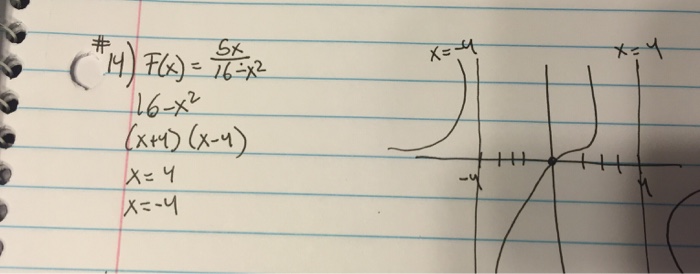 #14) F(x) = 5x/16-x²
16-x²
(x+4) (x-4)
x = 4
x = -4
x = -4
x = 4
-4
4